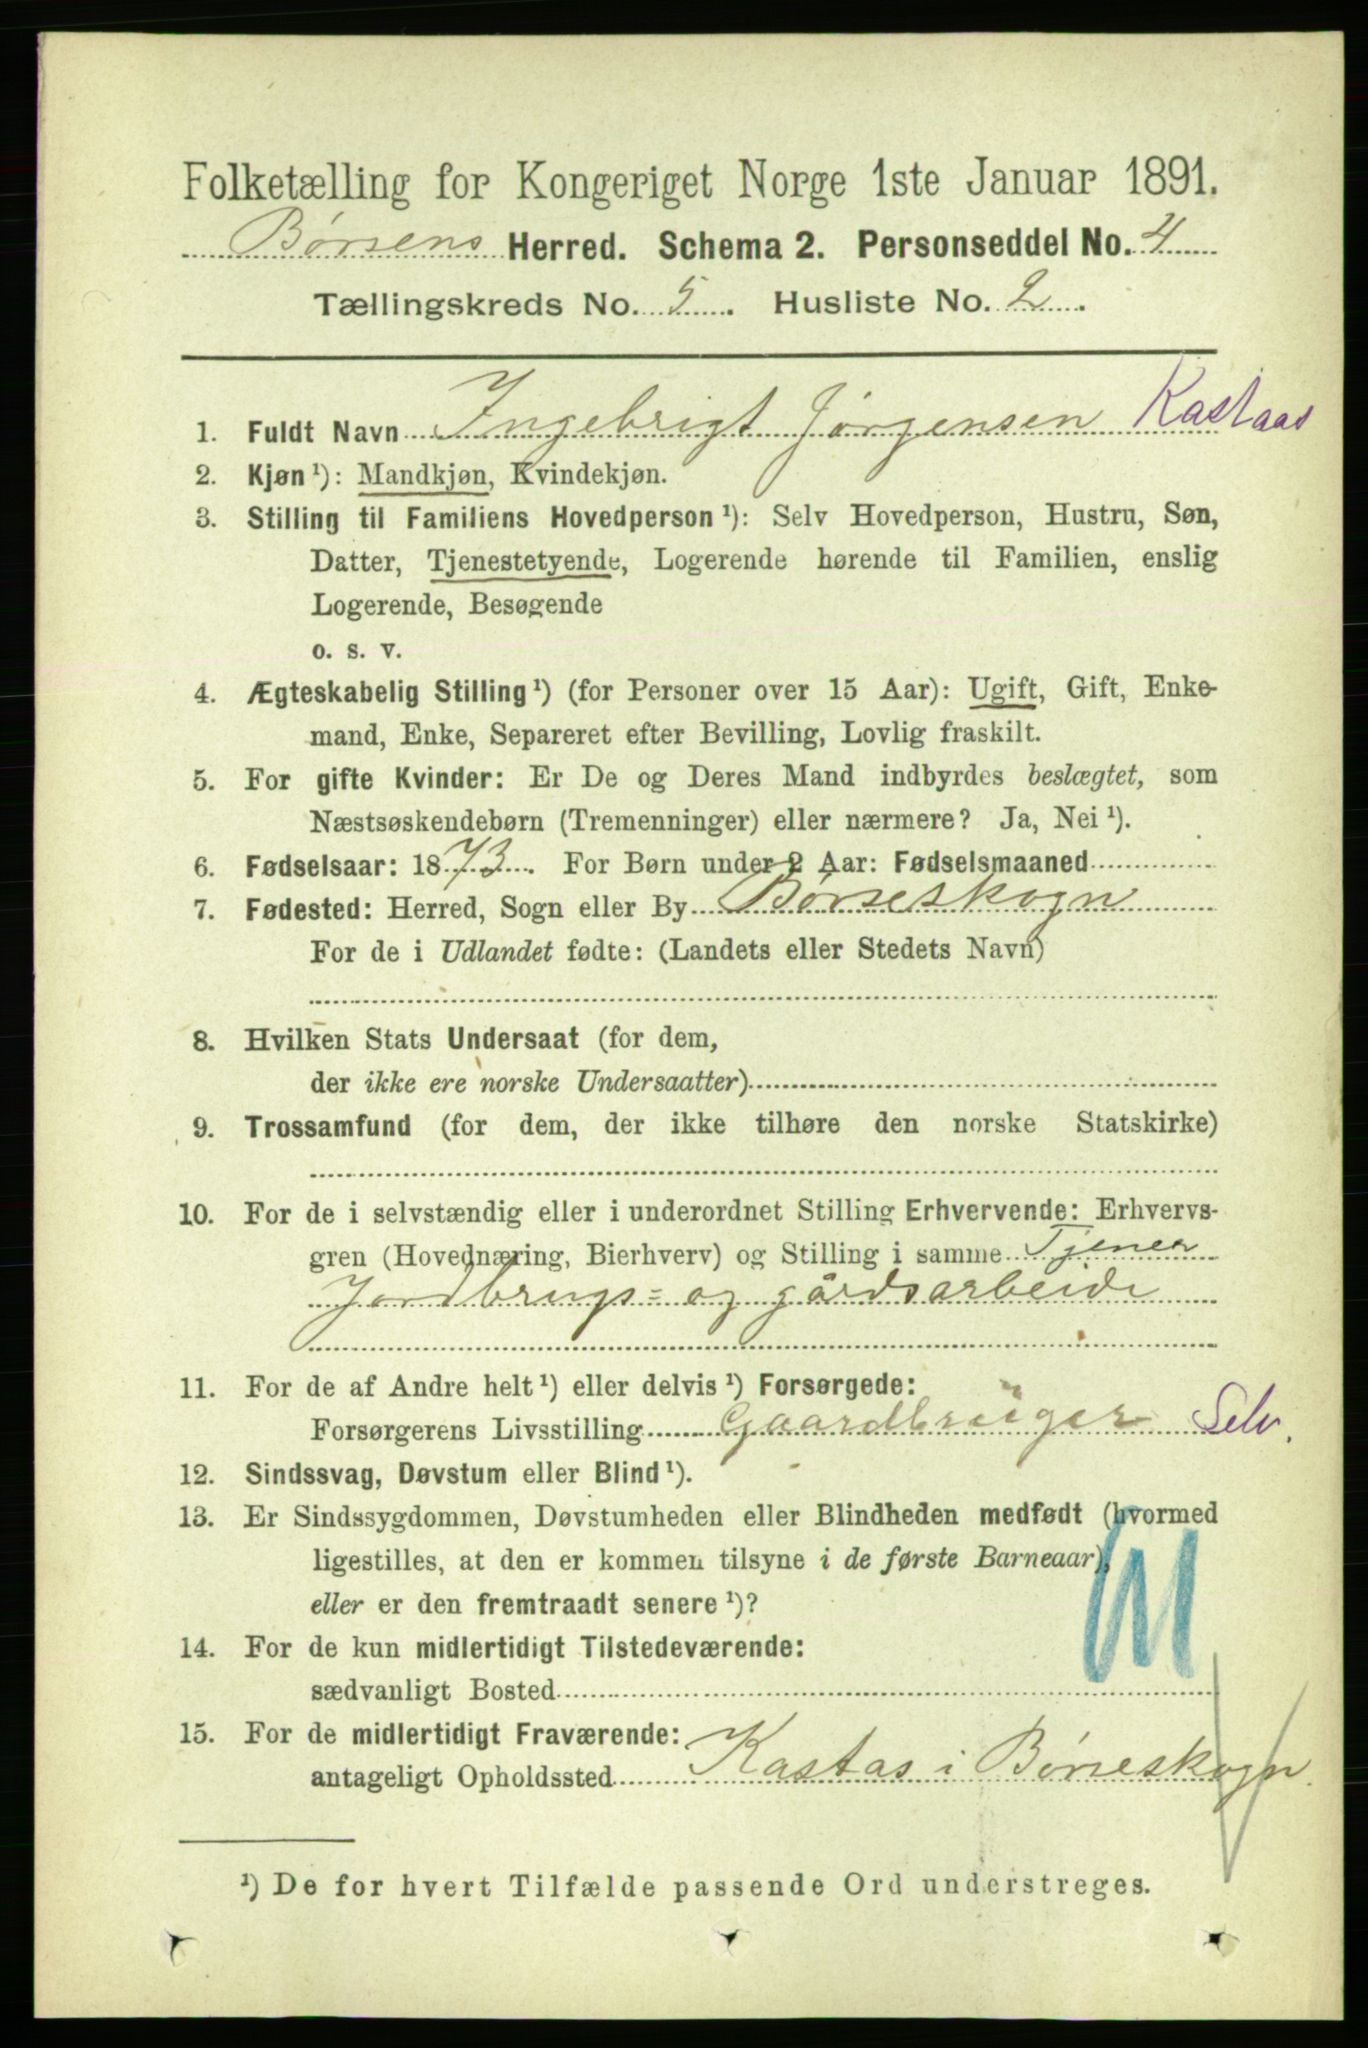 Folketælling for Kongeriget Norge 1ste Januar 1891.
Børsens Herred. Schema 2. Personseddel No. 4
Tællingskreds No. 5. Husliste No. 2.
1. Fuldt Navn Ingebrigt Jørgensen Kastaas
2. Kjøn¹): Mandkjøn, Kvindekjøn.
3. Stilling til Familiens Hovedperson¹): Selv Hovedperson, Hustru, Søn,
Datter, Tjenestetyende, Logerende hørende til Familien, enslig
Logerende, Besøgende
o. s. v.
4. Ægteskabelig Stilling¹) (for Personer over 15 Aar): Ugift, Gift, Enke-
mand, Enke, Separeret efter Bevilling, Lovlig fraskilt.
5. For gifte Kvinder: Er De og Deres Mand indbyrdes beslægtet, som
Næstsøskendebørn (Tremenninger) eller nærmere? Ja, Nei¹).
6. Fødselsaar: 1873. For Børn under 2 Aar: Fødselsmaaned
7. Fødested: Herred, Sogn eller By Børseskogn
For de i Udlandet fødte: (Landets eller Stedets Navn)
8. Hvilken Stats Undersaat (for dem,
der ikke ere norske Undersaatter)
9. Trossamfund (for dem, der ikke tilhøre den norske Statskirke)
10. For de i selvstændig eller i underordnet Stilling Erhvervende: Erhvervs-
gren (Hovednæring, Bierhverv) og Stilling i samme Tjener
Jordbrugs= og gårdsarbeide
11. For de af Andre helt¹) eller delvis¹) Forsørgede:
Forsørgerens Livsstilling Gaardbruger Selv.
12. Sindssvag, Døvstum eller Blind¹).
13. Er Sindssygdommen, Døvstumheden eller Blindheden medfødt (hvormed
ligestilles, at den er kommen tilsyne i de første Barneaar),
eller er den fremtraadt senere¹)?
14. For de kun midlertidigt Tilstedeværende:
sædvanligt Bosted
15. For de midlertidigt Fraværende:
antageligt Opholdssted Kastas i Børseskogn.
¹) De for hvert Tilfælde passende Ord understreges.